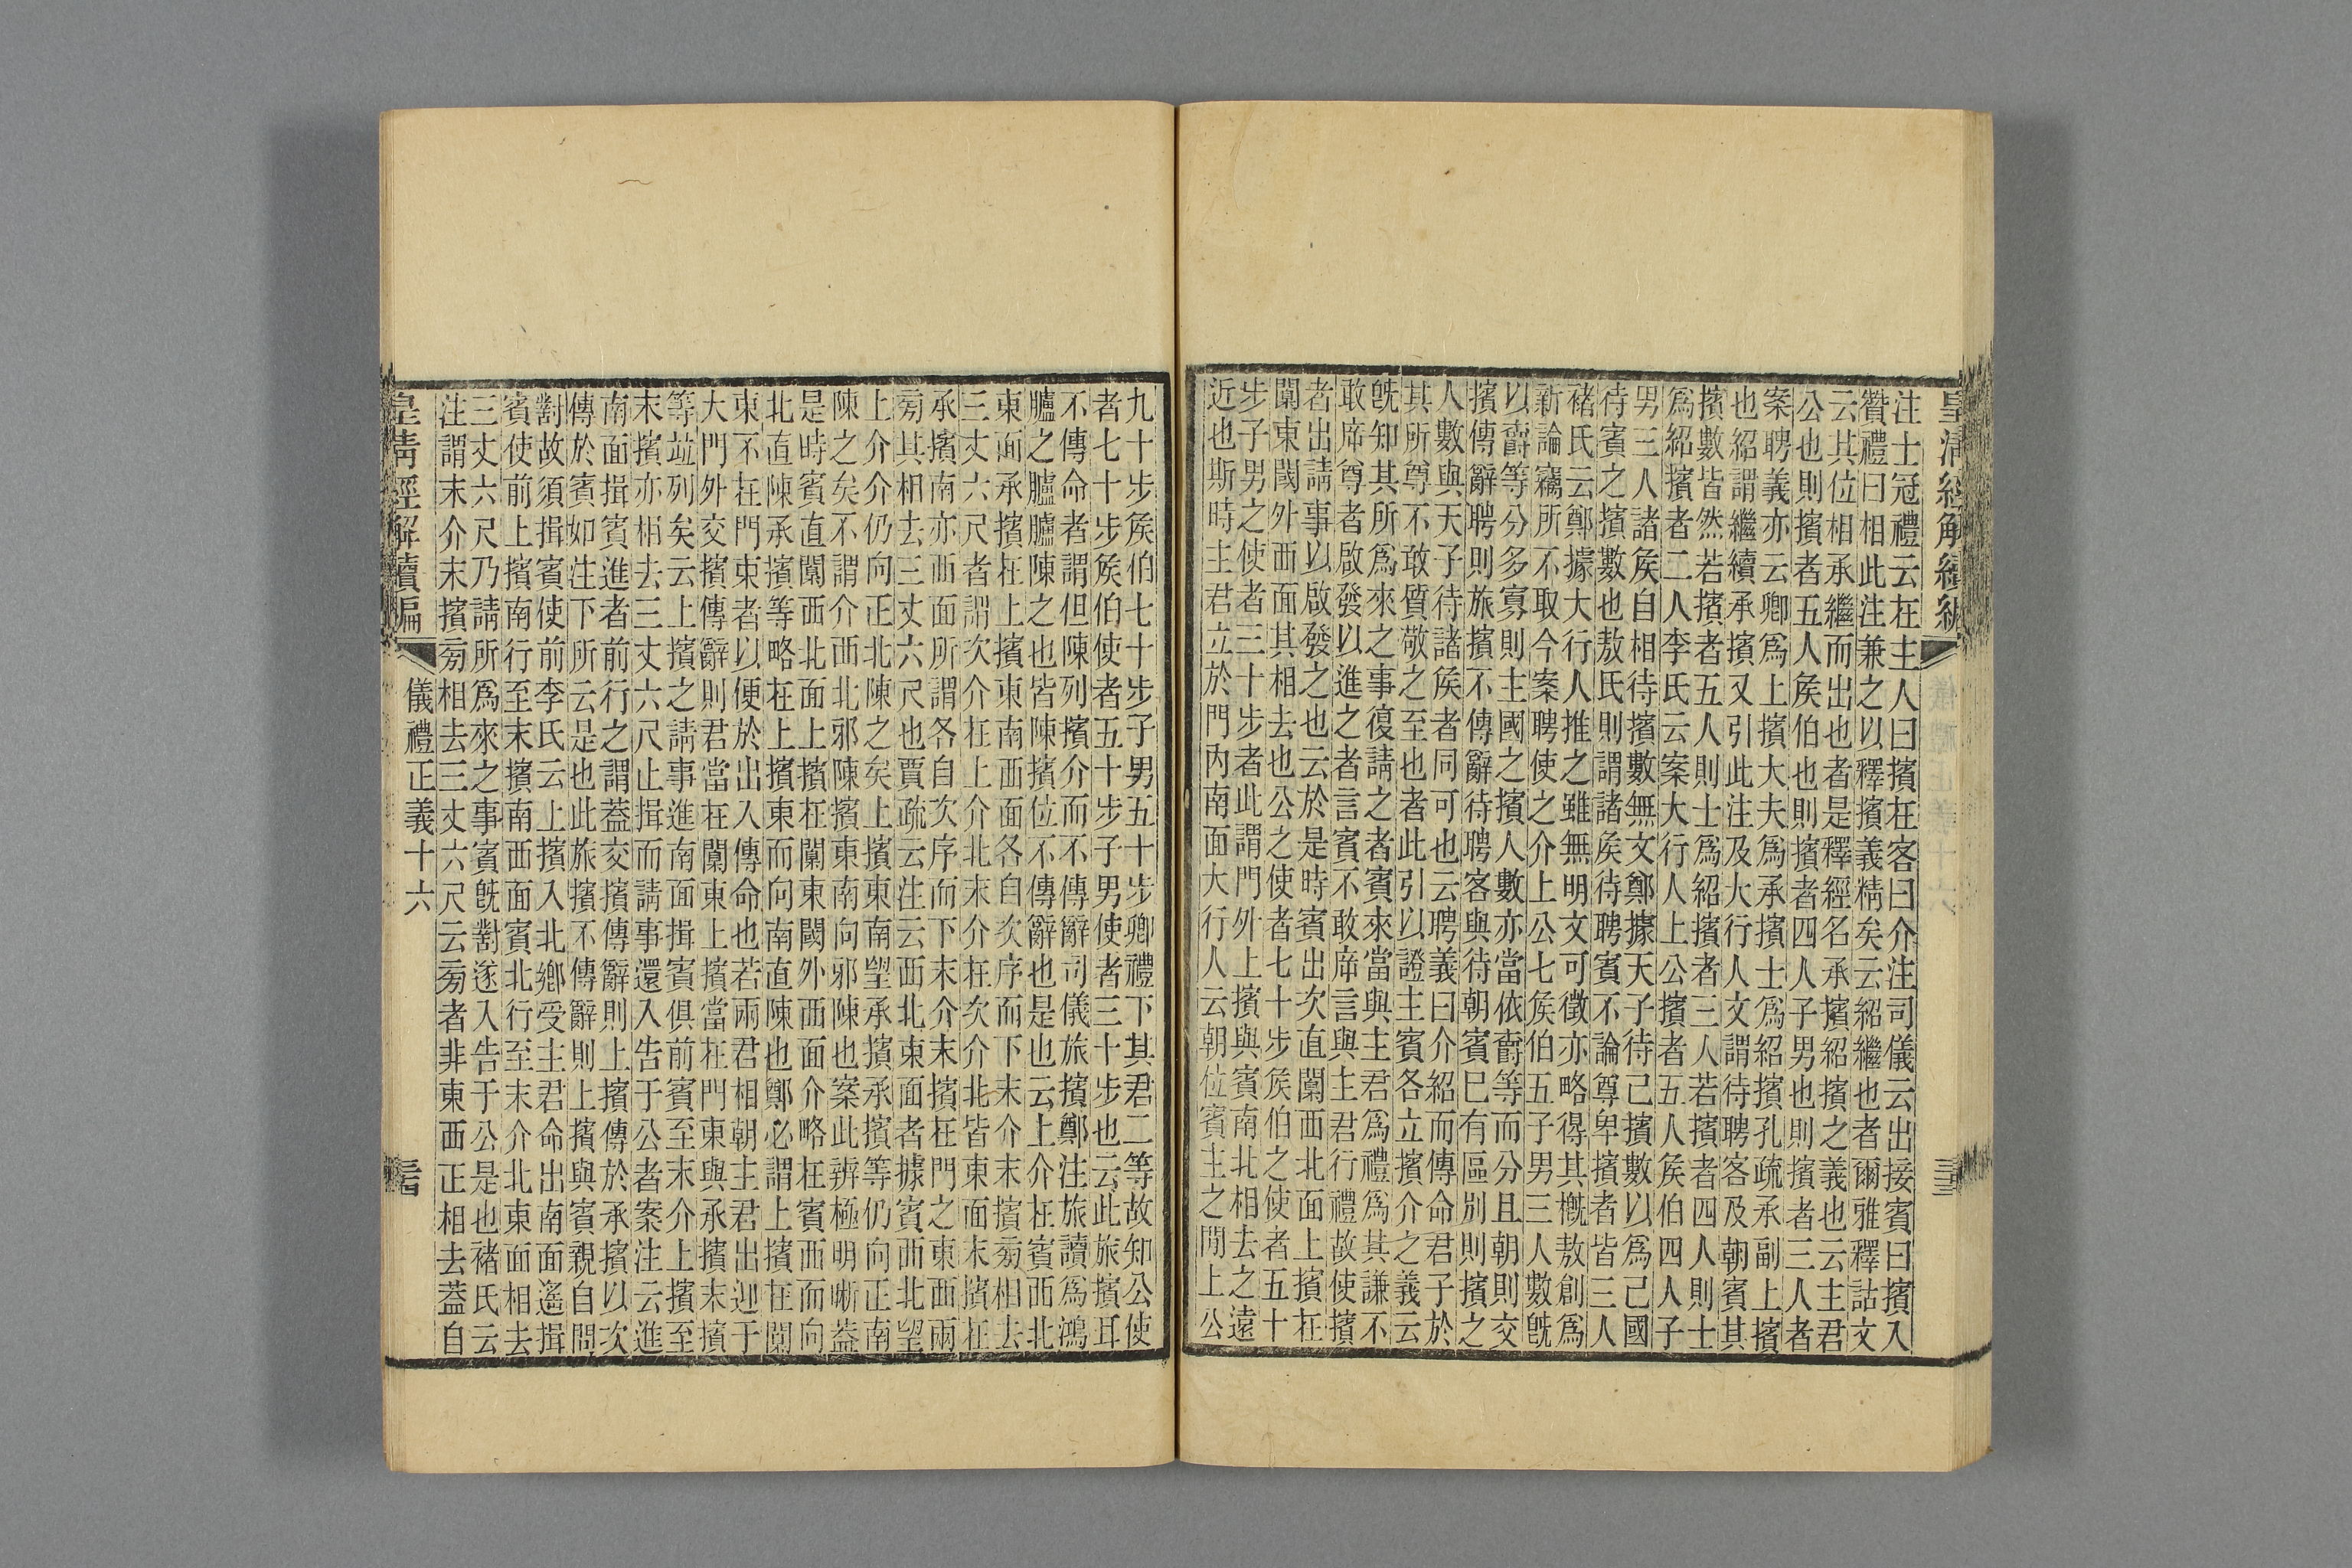 皇清經解續編
注士冠禮云在主人曰擯在客曰介注司儀云出接賓曰擯入
贊禮曰相此注兼之以釋擯義精矣云紹繼也者爾雅釋詁文
云其位相承繼而出也者是釋經名承擯紹擯之義也云主君
公也則擯者五人矦伯也則擯者四人子男也則擯者三人者
案聘義亦云卿爲上擯大夫爲承擯士爲紹擯孔疏承副上擯
也紹謂繼續承擯又引此注及大行人文謂待聘客及朝賓其
擯數皆然若擯者五人則士爲紹擯者三人若擯者四人則士
爲紹擯者二人李氏云案大行人上公擯者五人矦伯四人子
男三人諸矦自相待擯數無文鄭據天子待己擯數以爲己國
待賓之擯數也敖氏則謂諸矦待聘賓不論尊卑擯者皆三人
褚氏云鄭據大行人推之雖無明文可徵亦略得其槪敖創爲
新論竊所不取今案聘使之介上公七矦伯五子男三人數旣
以爵等分多寡則主國之擯人數亦當依爵等而分且朝則交
擯傳辭聘則旅擯不傳辭待聘客與待朝賓巳有區別則擯之
人數與天子待諸矦者同可也云聘義曰介紹而傳命君子於
其所尊不敢質敬之至也者此引以證主賓各立擯介之義云
旣知其所爲來之事復請之者賓來當與主君爲禮爲其謙不
敢席尊者啟發以進之者言賓不敢席言與主君行禮故使擯
者出請事以啟發之也云於是時賓出次直闑西北面上擯在
闑東閾外西面其相去也公之使者七十步矦伯之使者五十
步子男之使者三十步者此謂門外上擯與賓南北相去之遠
近也斯時主君立於門內南面大行人云朝位賓主之閒上公
九十步矦伯七十步子男五十步卿禮下其君二等故知公使
者七十步矦伯使者五十步子男使者三十步也云此旅擯耳
不傳命者謂但陳列擯介而不傳辭司儀旅擯鄭注旅讀爲鴻
臚之臚臚陳之也皆陳擯位不傳辭也是也云上介在賓西北
東面承擯在上擯東南西面各自次序而下末介末擯旁相去
三丈六尺者謂次介在上介北末介在次介北皆東面末擯在
承擯南亦西面所謂各自次序而下末介末擯在門之東西兩
旁其相去三丈六尺也賈疏云注云西北東面者據賓西北望
上介介仍向正北陳之矣上擯東南望承擯承擯等仍向正南
陳之矣不謂介西北邪陳擯東南向邪陳也案此辨極明晰蓋
是時賓直闑西北面上擯在闑東閾外西面介略在賓西而向
北直陳承擯等略在上擯東而向南直陳也鄭必謂上擯在闑
東不在門東者以便於出入傳命也若兩君相朝主君出迎于
大門外交擯傳辭則君當在闑東上擯當在門東與承擯末擯
等竝列矣云上擯之請事進南面揖賓俱前賓至末介上擯至
末擯亦相去三丈六尺止揖而請事還入告于公者案注云進
南面揖賓進者前行之謂蓋交擯傳辭則上擯傳於承擯以次
傳於賓如注下所云是也此旅擯不傳辭則上擯與賓親自問
對故須揖賓使前李氏云上擯入北鄉受主君命出南面遙揖
賓使前上擯南行至末擯南西面賓北行至末介北東面相去
三丈六尺乃請所爲來之事賓旣對遂入告于公是也褚氏云
注謂末介末擯旁相去三丈六尺云旁者非東西正相去蓋自
皇清經解續編 儀禮正義十六 三四